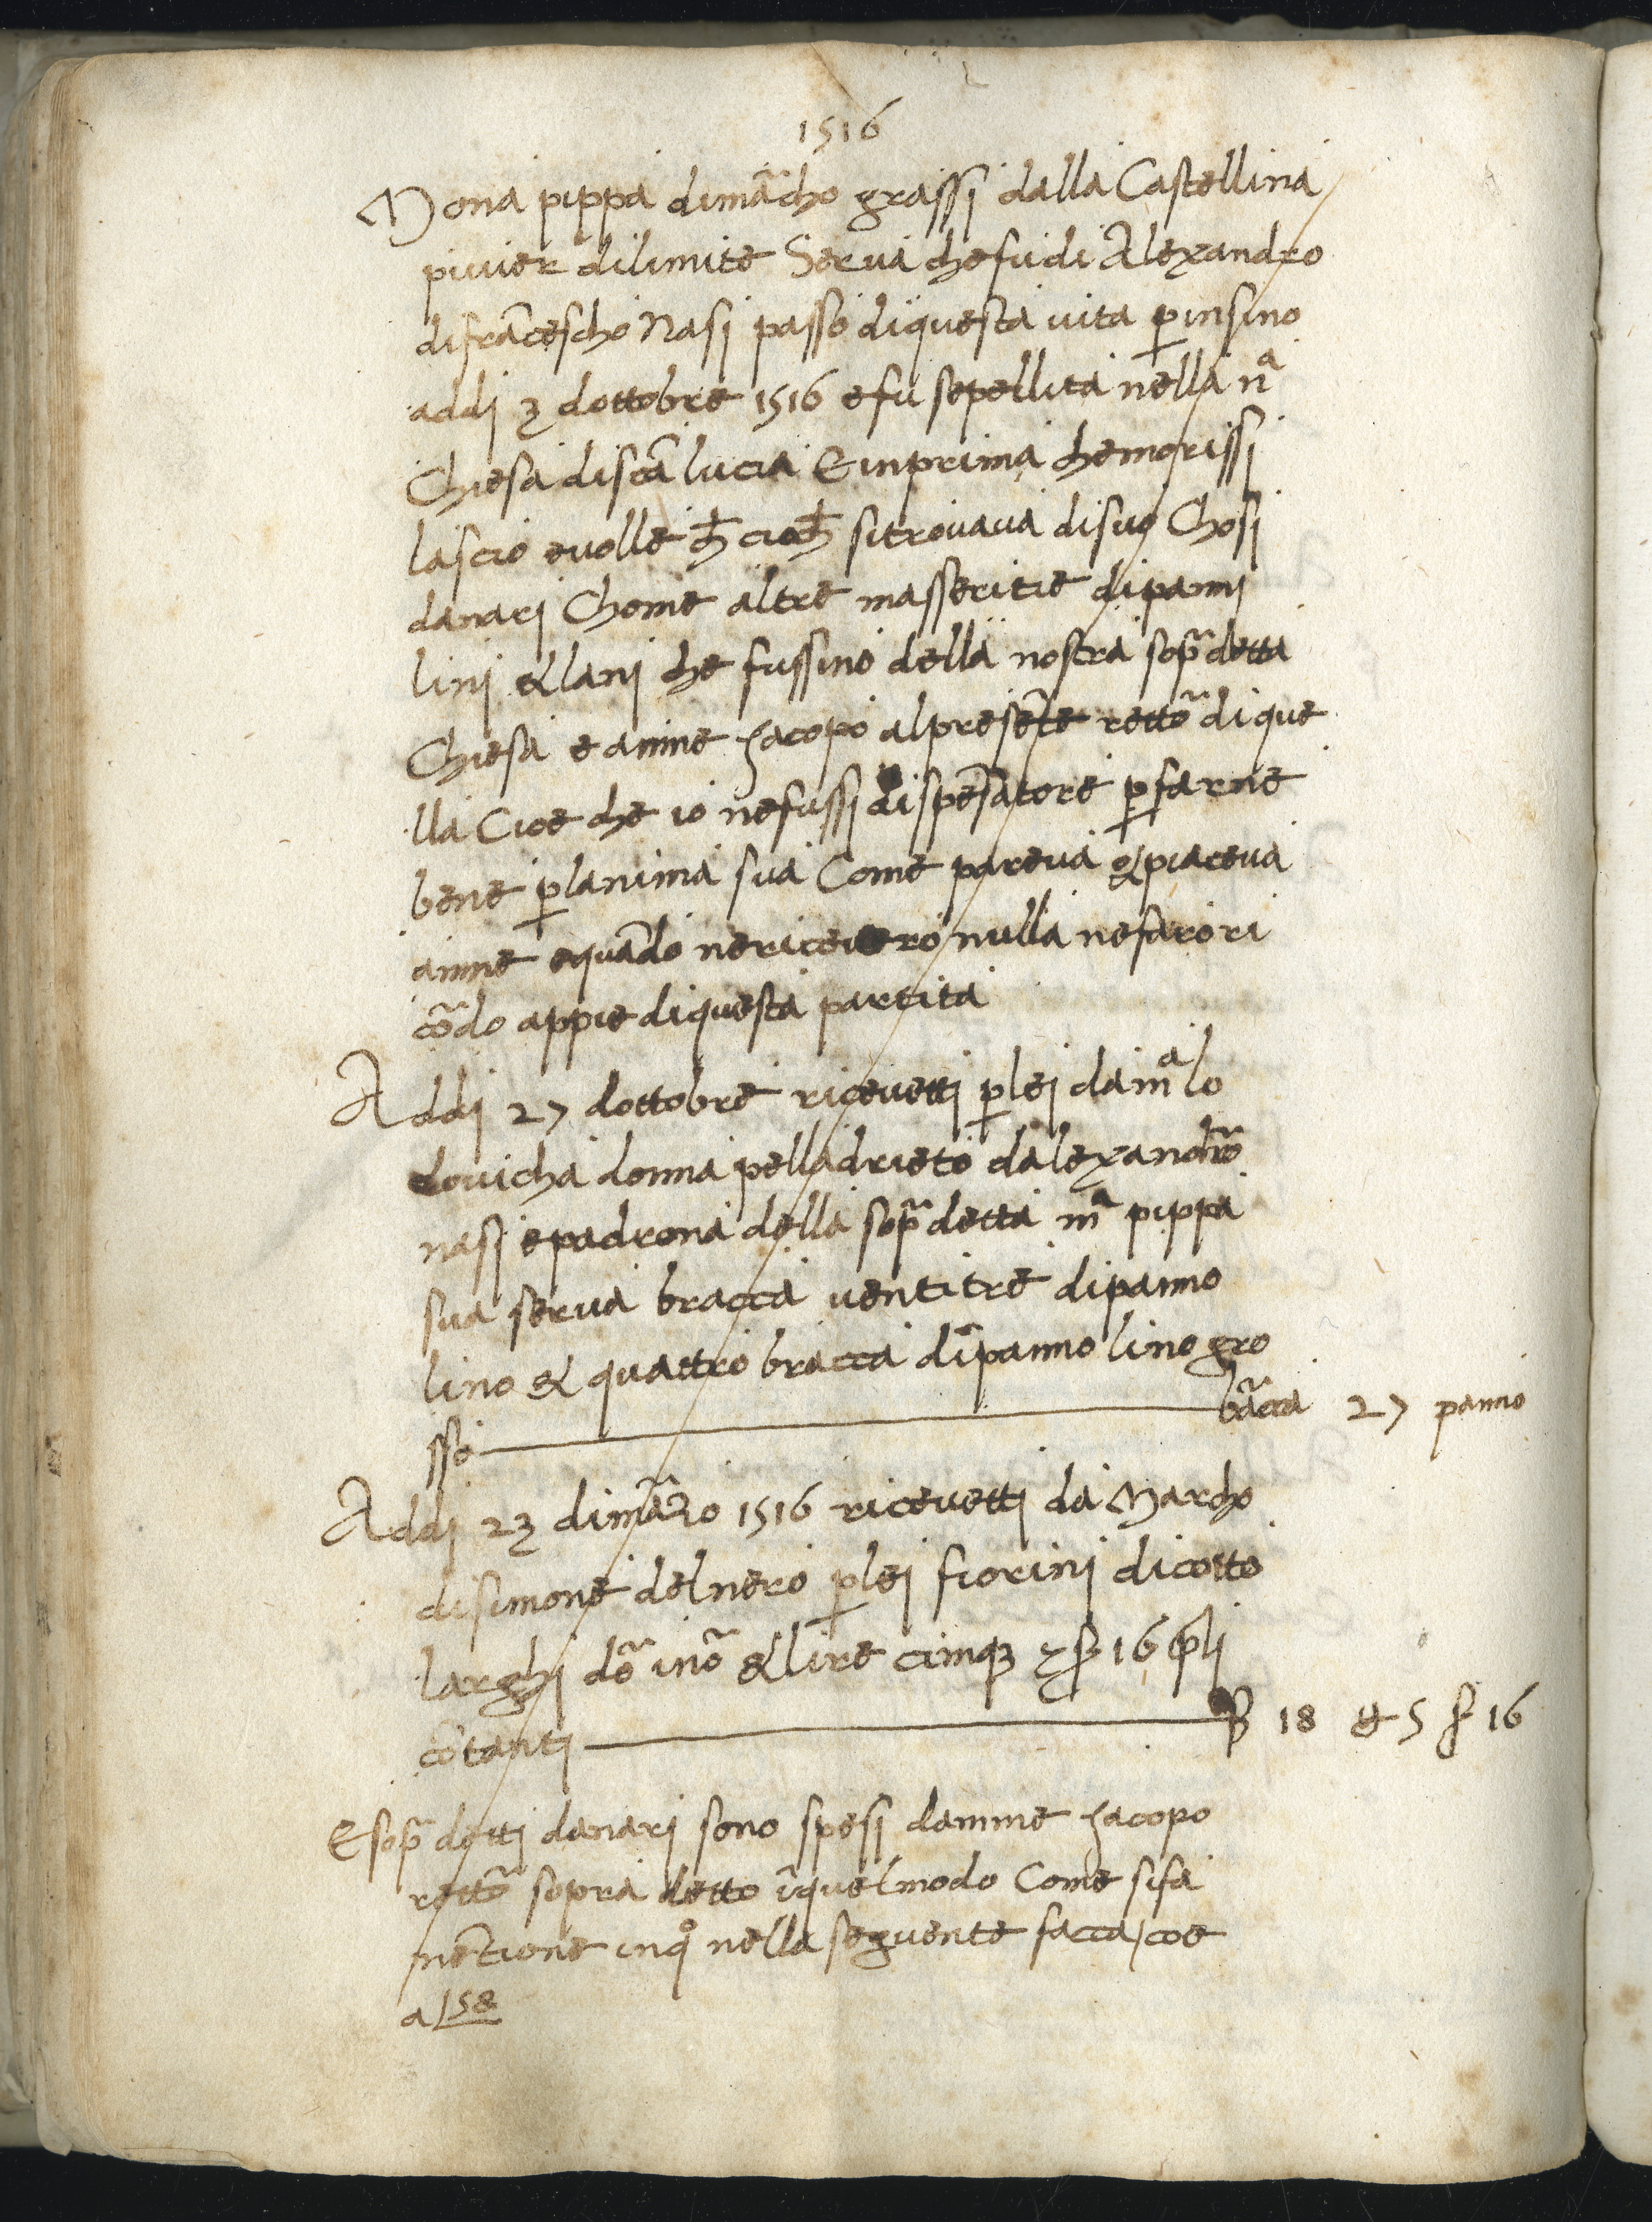 1516
Mona pippa dimãcho grassi dalla Castellina
piuier dilimite Serua chefudi Alexandro
difrãcescho Nasi passo diquesta uita p̱insino
addi 3 dottobre 1516 efu sepellita nella nª
Chiesa discã lucia E inprima chemorissi
lascio euolle ch̄ cioch̄ sitrouaua disuo Chosi
danari Chome altre masseritie dipanni
lini & lani che fussino della nostra sop̃detta
Chiesa e amme Jacopo alpresẽte rettõ dique
lla Cioe che io nefussi dispẽsatore p̱farne
bene p̱lanima sua Come pareua & piaceua
amme equãdo nericeuero nulla nefaro ri
cõdo appie diquesta partita
Addi 27 dottobre riceuetti p̱lei da mª lo
douicha donna pelladrieto dalexandrõ
nasi epadrona della sop̃detta mª pippa
sua serua bracca uentitre dipanno
lino & quattro bracca dipanno lino gro
sso bãcca 27 panno
Addi 23 dimãzo 1516 riceuetti da Marcho
disimone delnero p̱lei fiorini dicotto
larghi dõ inõ & lire cinqꝫ & ß 16 p̱li
cõtanti 18 & 5 ß 16
E sop̃detti danari sono spesi damme Jacopo
rettõ sopra detto ĩquelmodo Come sifa
mẽtione inq̊ nella seguente facca / coe
a 158